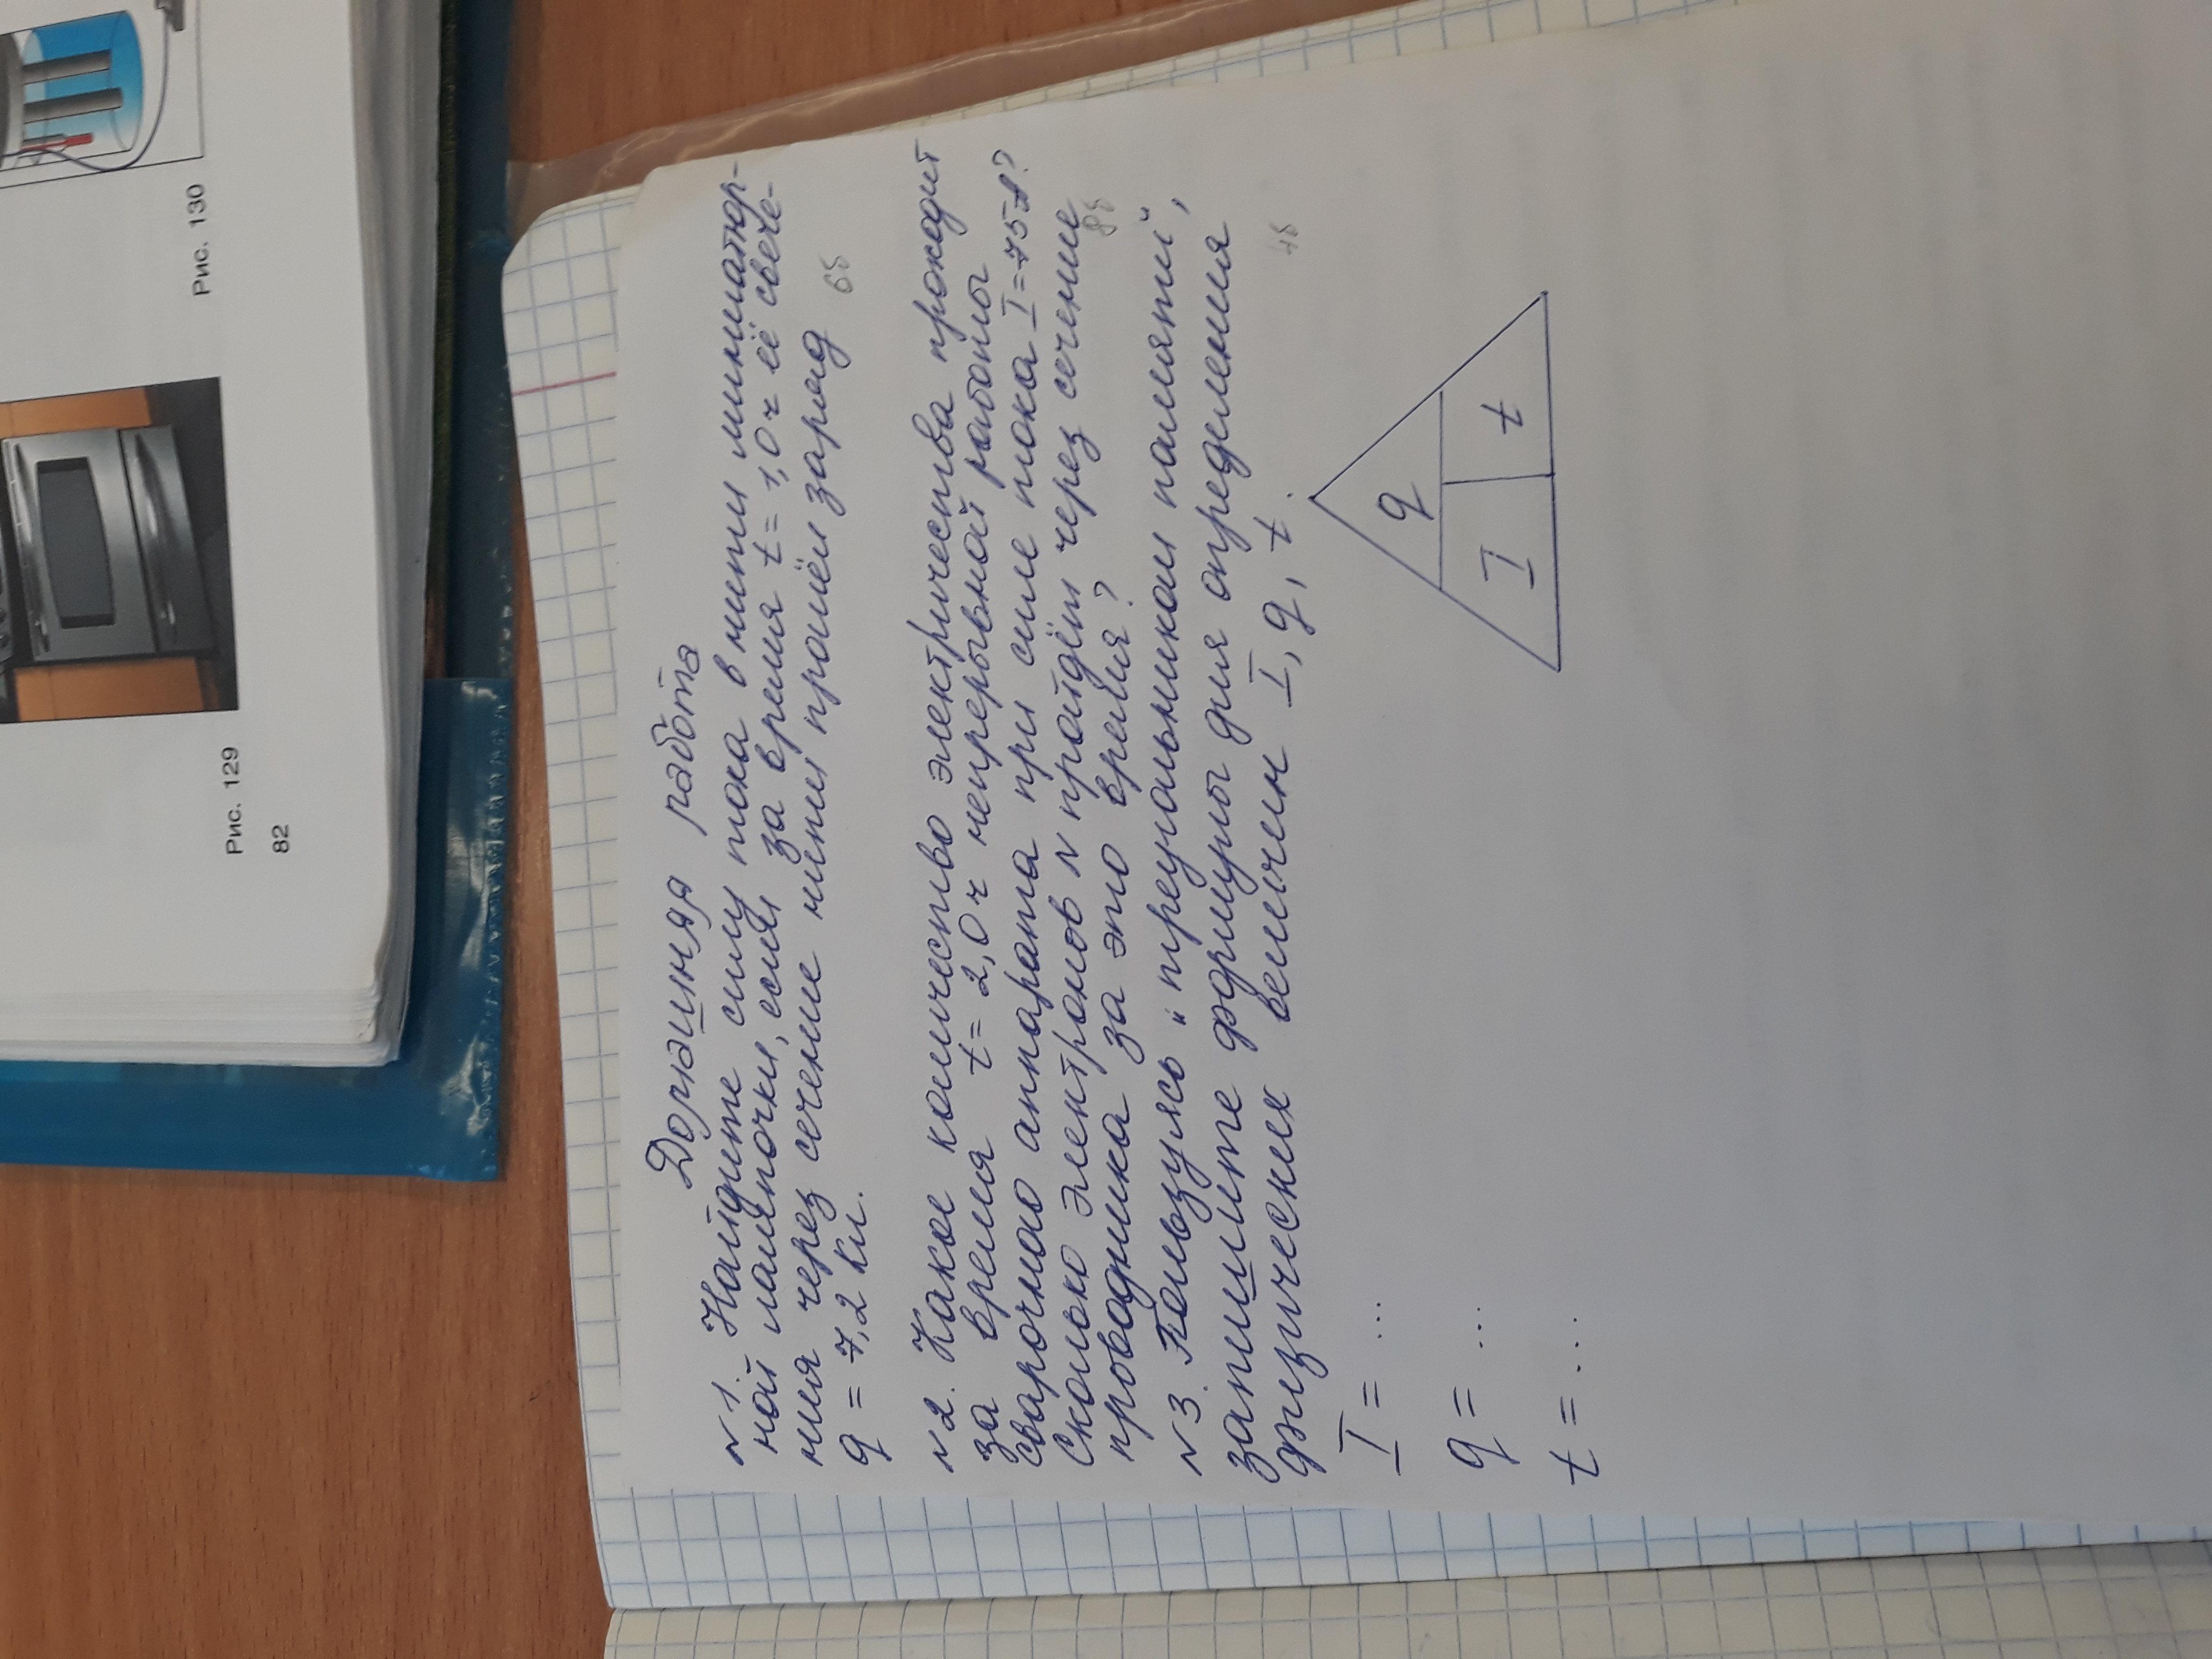 Рис. 129
Рис. 130
82
Домашняя работа
N 1. Найдите силу тока в нити миниатюр-
ной лампочки, если за время t = 1,0 ч её свече-
ния через сечение нити прошёл заряд
q = 7,2 Кл.
6б
N 2. Какое количество электричества проходит
за время t = 2,0 ч непрерывной работы
сварочного аппарата при силе тока I = 75 А?
Сколько электронов N пройдёт через сечение
проводника за это время?
8б
N 3. Пользуясь "треугольником памяти",
запишите формулы для определения
физических величин I, q, t.
4б
I = ...
q = ...
t = ...
q
I t